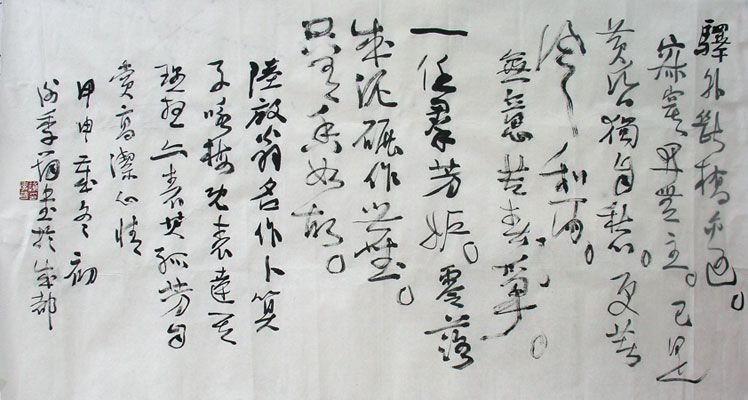 驛外斷橋邊。
寂寞開無主。已是
黃昏獨自愁。更著
風和雨。
無意苦春爭。
一任羣芳妒。零落
成泥碾作塵。
只有香如故。
陸放翁名作卜算
子咏梅表達其
理想亦表其孤芳自
賞高潔心情
甲申歲冬初
季書於成都